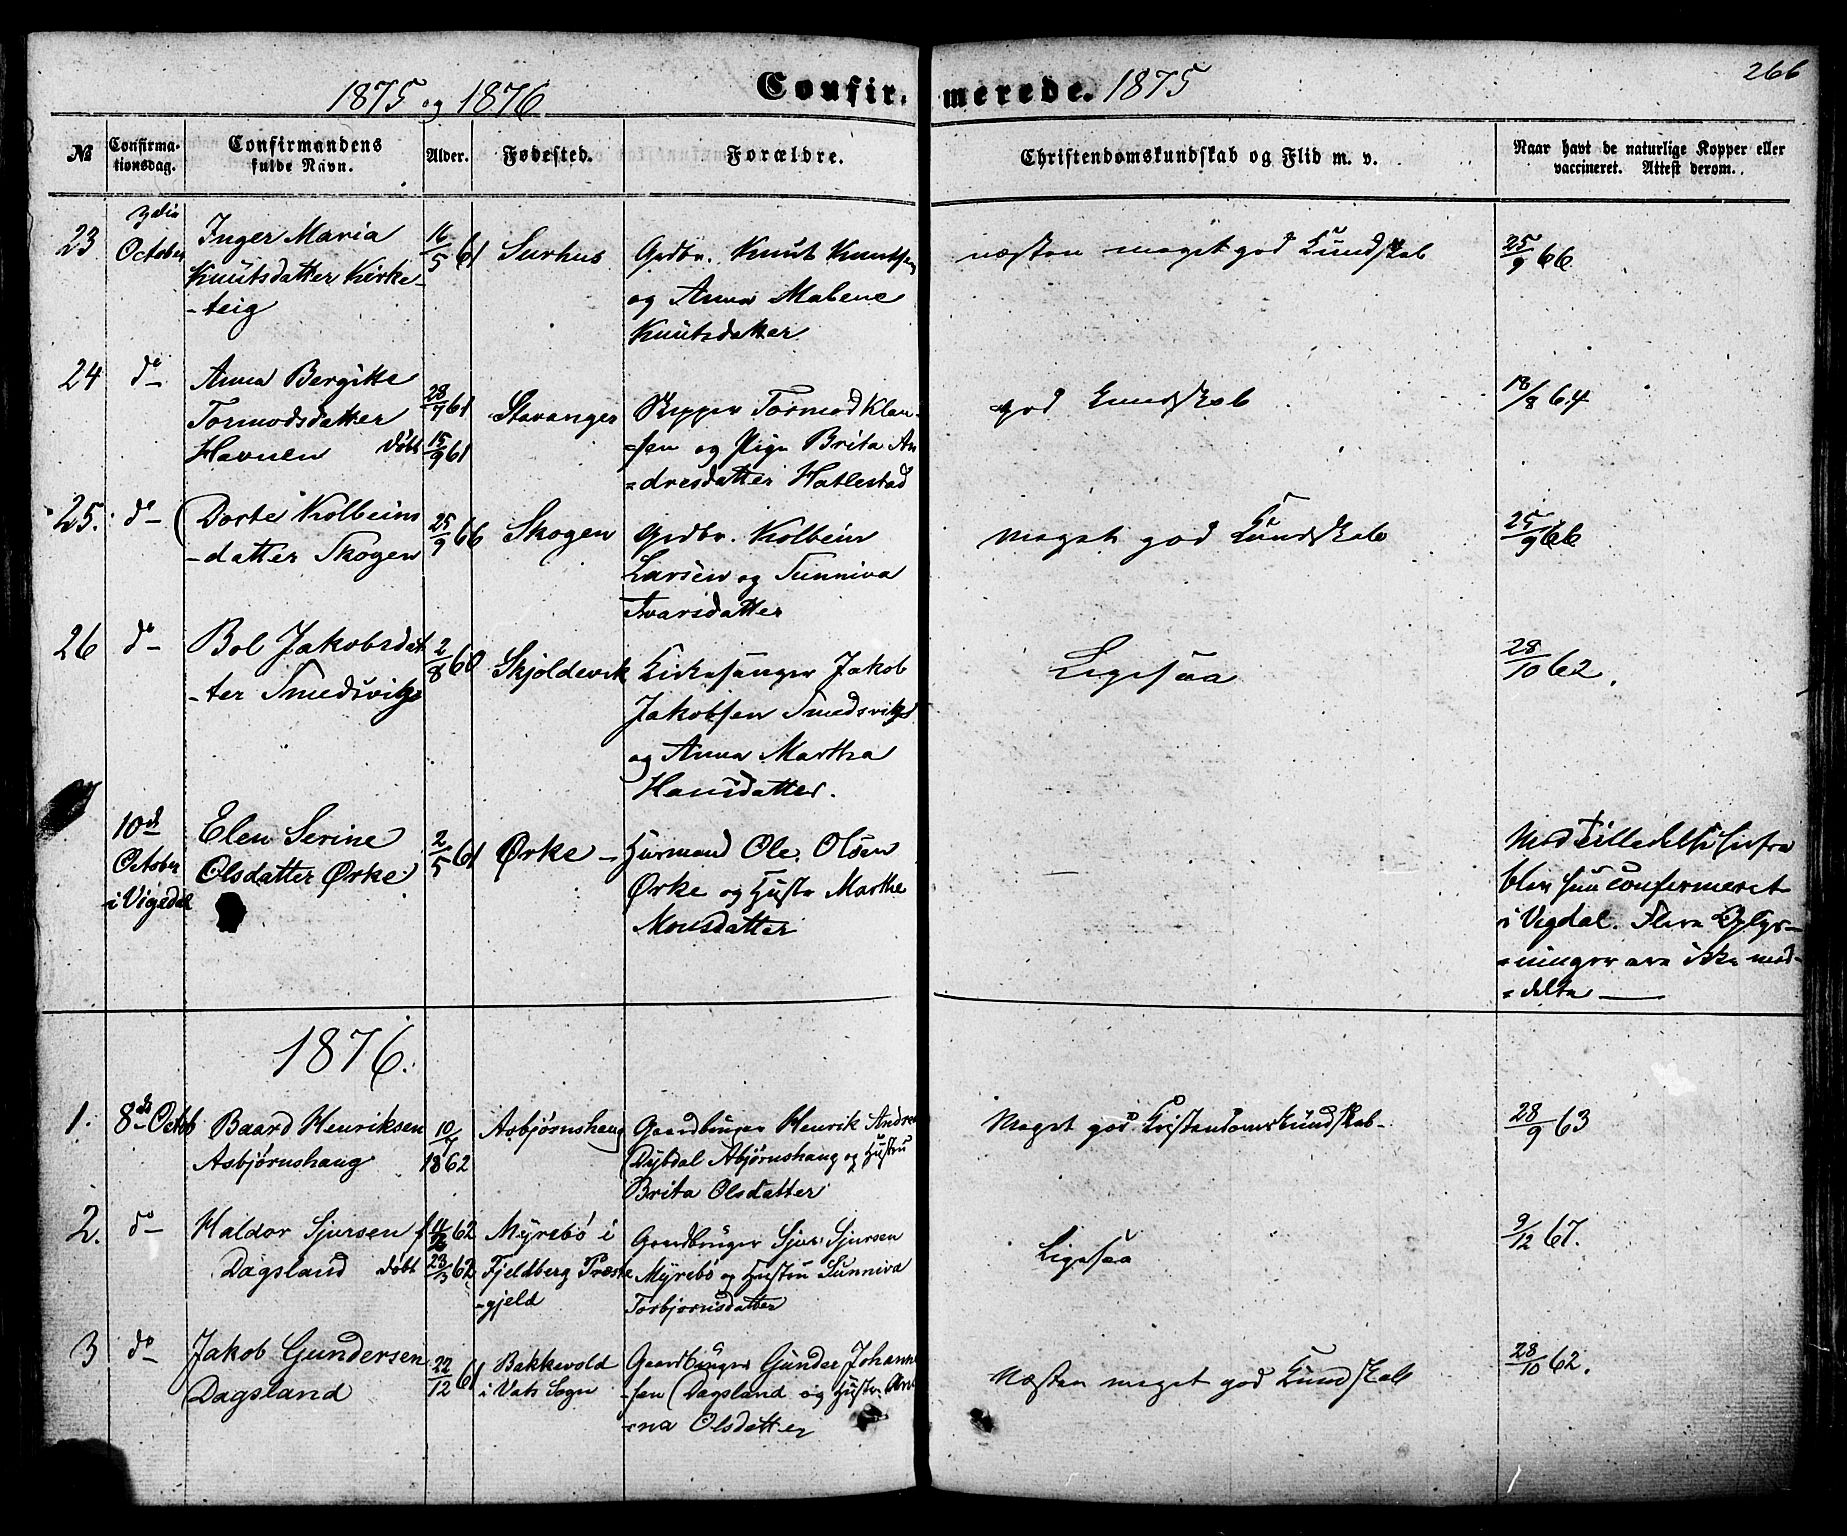 266
1875 og 1876
Confirmerede. 1875
№
Confirmationsdag.
Confirmandens fulde Navn.
Alder.
Fødested.
Forældre.
Christendomskundskab og Flid m. v.
Naar havt de naturlige Kopper eller vaccineret. Attest derom.
23
October
Inger Maria
Knutsdatter Kirke-
-teig
16/5 61
Surhus
Grdbr. Knut Knutsen
og Anna Malene
Knutsdatter
næsten meget god Kundskab
25/9 66
24
do
Anna Bergitte
Tormodsdatter
Havnen døbt
28/7 61
15/9 61
Stavanger
Skipper Tormod Klau-
-sen og Pige Brita An
=dresdatter Hatlestad
god Kundskab
18/8 64
25.
do
Dorte Kolbeins
-datter Skogen
25/9 66
Skogen
Grdbr. Kolbein
Larsen og Sunniva
Ivarsdatter
meget god Kundskab
25/9 66
26
do
Bol Jakobsdat
-ter Smedsvig
2/8 60
Skjoldevik
Kirkesanger Jakob
Jakobsen Smedsvig
og Anna Martha
Hansdatter.
Ligesaa
28/10 62.
10de
October
i Vigedal
Elen Serine
Olsdatter Ørke
2/5 61
Ørke
Huusmand Ole Olsen
Ørke og Hustr Marthe
Monsdatter
Med Tilladelse herfra
blev hun confermeret
i Vigdal. Flere Oplys-
=ninger ere ikke med-
=delte
1876.
1.
8de Octob
Baard Henriksen
Asbjørnshaug
10/7 1862
Asbjørnshaug
Gaardbruger Henrik Andre
Dybdal Asbjørnshaug og Hustru
Brita Olsdatter
Meget god Kristendomskundskab.
28/9 63
2.
do
Haldor Sjursen f
Dagsland døbt
62
23/3 62
Myrebø i
Fjeldberg Præste
-gjeld
Gaardbruger Sjur Sjursen
Myrebø og Hustru Sunniva
Torbjørnsdatter
Ligesaa
9/12 67.
3
do
Jakob Gundersen
Dagsland
22/12 61
Bakkevold
i Vats Sogn
Gaardbruger Gunder Johanne
-sen Dagsland og Hustr An
-na Olsdatter
Næsten meget god Kundskab
28/10 62.